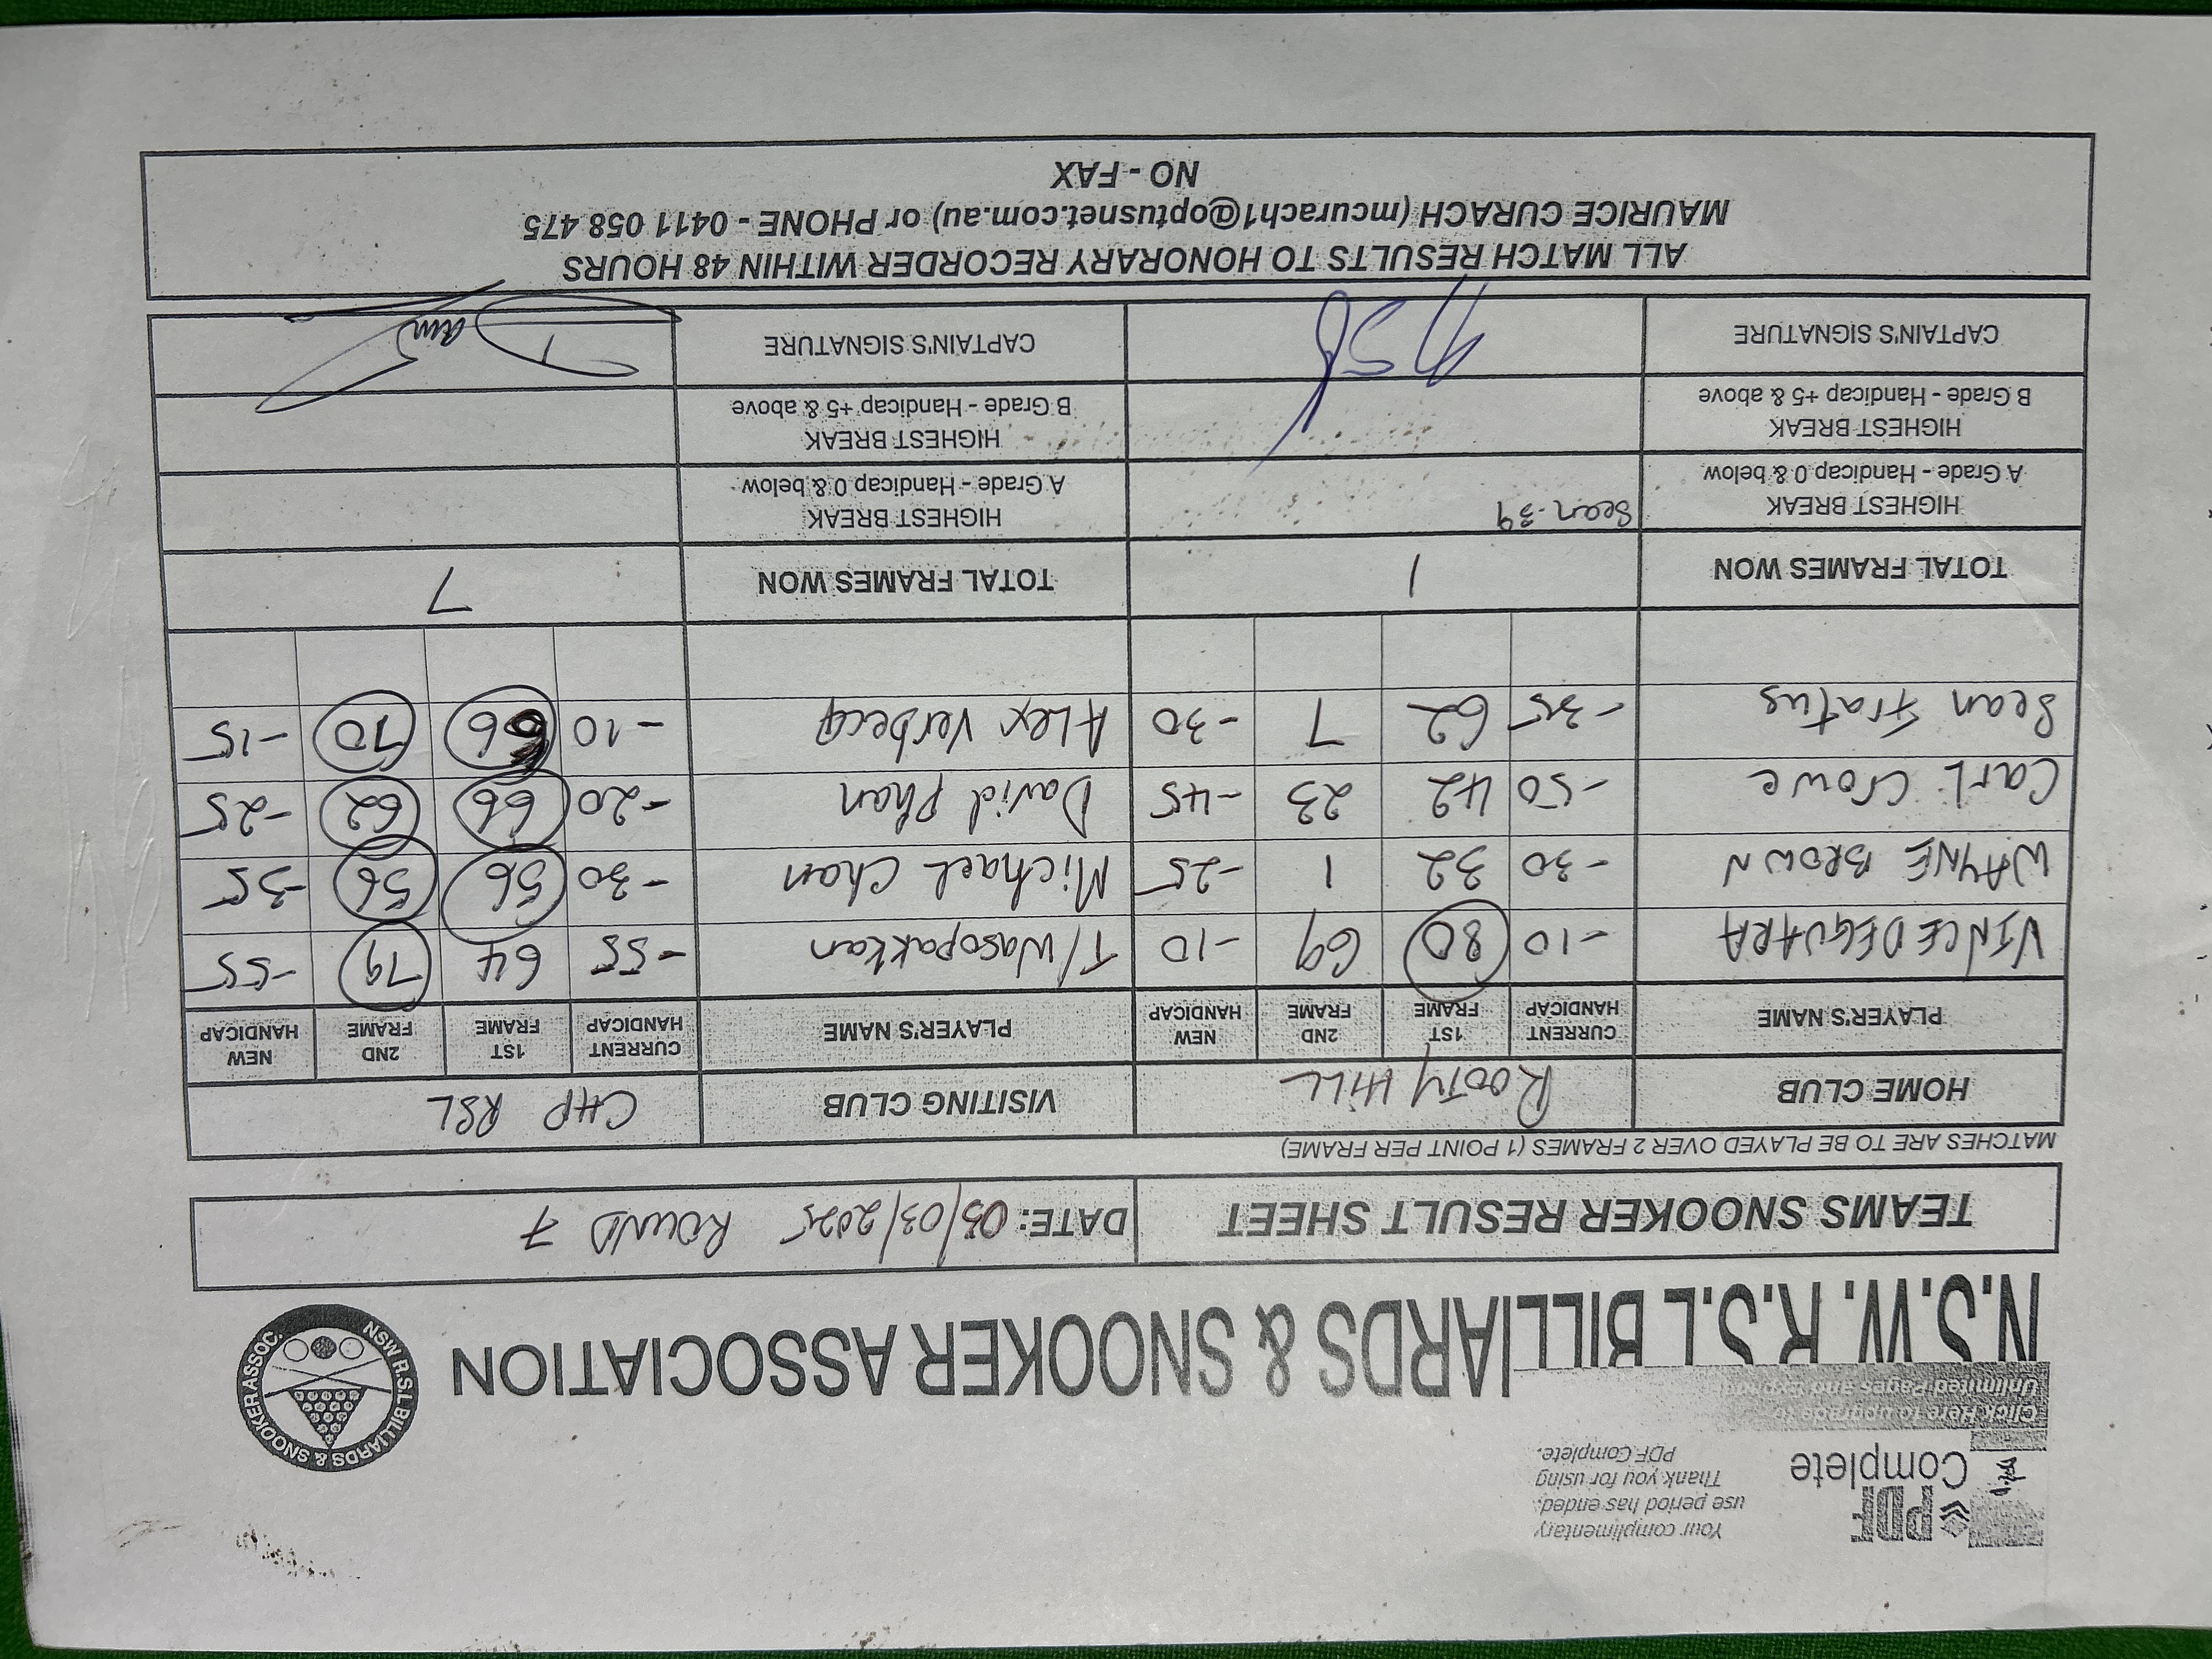 PDF
Complete
Your complimentary
use period has ended.
Thank you for using
PDF Complete.
Click Here to upgrade to
Unlimited Pages and
N.S.W. R.S.L BILLIARDS & SNOOKER ASSOCIATION
NSW R.S.L BILLIARDS & SNOOKER ASSOC.
TEAMS SNOOKER RESULT SHEET DATE: 03/03/2025 ROUND 7
MATCHES ARE TO BE PLAYED OVER 2 FRAMES (1 POINT PER FRAME)
HOME CLUB ROOTY HILL VISITING CLUB CHP RSL
PLAYER'S NAME CURRENT HANDICAP 1ST FRAME 2ND FRAME NEW HANDICAP PLAYER'S NAME CURRENT HANDICAP 1ST FRAME 2ND FRAME NEW HANDICAP
VINCE DEGUARA -10 80 69 -10 T/Wasopakkan -55 64 79 -55
WAYNE BROWN -30 32 1 -25 Michael Chan -30 56 56 -35
Carl Crowe -50 42 23 -45 David Phan -20 66 62 -25
Sean Fratus -35 62 7 -30 Alex Verbecq -10 66 70 -15
TOTAL FRAMES WON 1 TOTAL FRAMES WON 7
HIGHEST BREAK
A Grade - Handicap 0 & below Sean-39
HIGHEST BREAK
A Grade - Handicap 0 & below
HIGHEST BREAK
B Grade - Handicap +5 & above
HIGHEST BREAK
B Grade - Handicap +5 & above
CAPTAIN'S SIGNATURE CAPTAIN'S SIGNATURE
ALL MATCH RESULTS TO HONORARY RECORDER WITHIN 48 HOURS
MAURICE CURACH (mcurach1@optusnet.com.au) or PHONE - 0411 058 475
NO - FAX